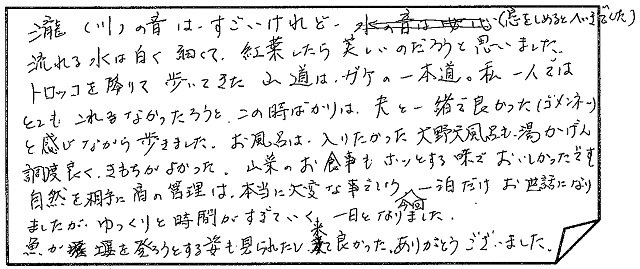 瀧(川)の音は、すごいけれど、(窓をしめるとへいきでした)
流れる水は白く細くて、紅葉したら美しいのだろうと思いました。
トロッコを降りて歩いてきた山道は、ガケの一本道。私一人では
とてもこれるなかったろうと、この時ばかりは、夫と一緒で良かった(ゴメンネッ)
と感じながら歩きました。お風呂は、入りたかった大野天風呂も、湯かげん
調度良く、きもちがよかった。山菜のお食事もホッとする味でおいしかったです
自然を相手に宿の管理は、本当に大変な事でしょう 一泊だけお世話になり
ましたが、ゆっくりと時間がすぎていく、一日となりました。今回
魚が堰を登ろうとする姿も見られたし、来て良かった。ありがとうございました。